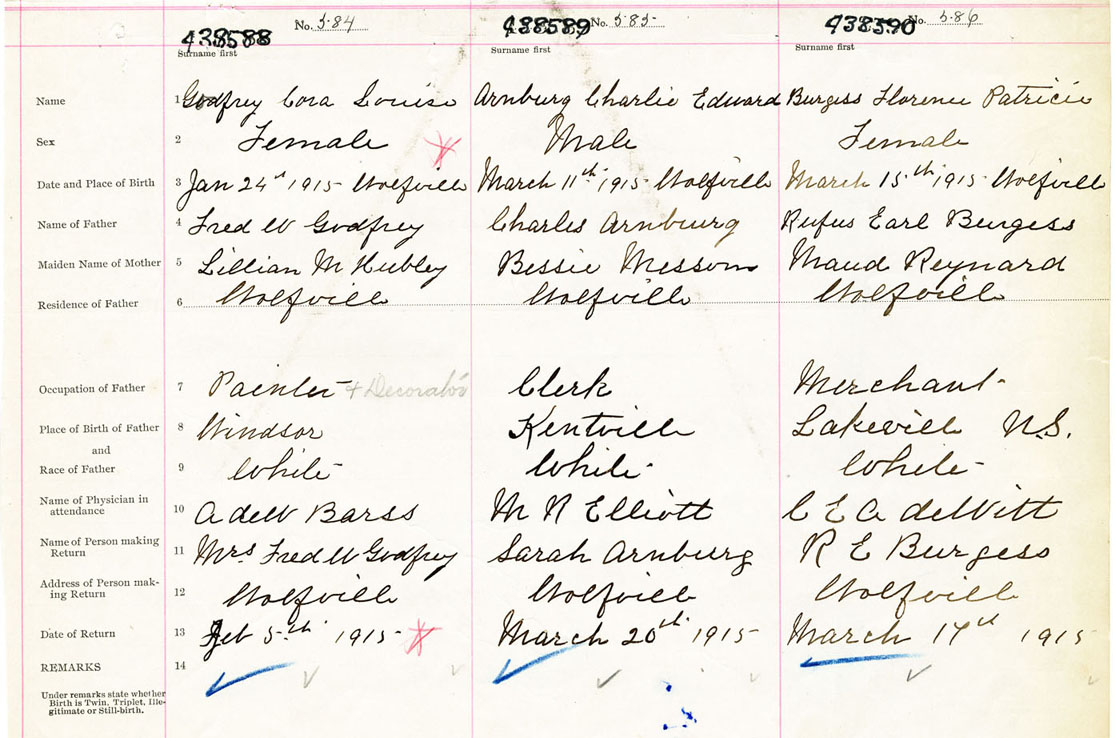 No. 584 No. 585 No. 586
438588 438589 438590
Surname first Surname first Surname first
Name 1 Godfrey Cora Louise Arnburg Charlie Edward Burgess Florence Patricia
Sex 2 Female Male Female
Date and Place of Birth 3 Jan 24th 1915 Wolfville March 11th 1915 Wolfville March 15th 1915 Wolfville
Name of Father 4 Fred W Godfrey Charles Arnburg Rufus Earl Burgess
Maiden Name of Mother 5 Lillian M Hubley Bessie Messom Maud Reynard
Residence of Father 6 Wolfville Wolfville Wolfville
Occupation of Father 7 Painter + Decorator Clerk Merchant
Place of Birth of Father 8 Windsor Kentville Lakeville N.S.
and
Race of Father 9 White White White
Name of Physician in
attendance 10 A deW Barss M R Elliott C E A deWitt
Name of Person making
Return 11 Mrs Fred W Godfrey Sarah Arnburg R E Burgess
Address of Person mak-
ing Return 12 Wolfville Wolfville Wolfville
Date of Return 13 Feb 5th 1915 March 20th 1915 March 17th 1915
REMARKS 14
Under remarks state whether
Birth is Twin, Triplet, Ille-
gitimate or Still-birth.